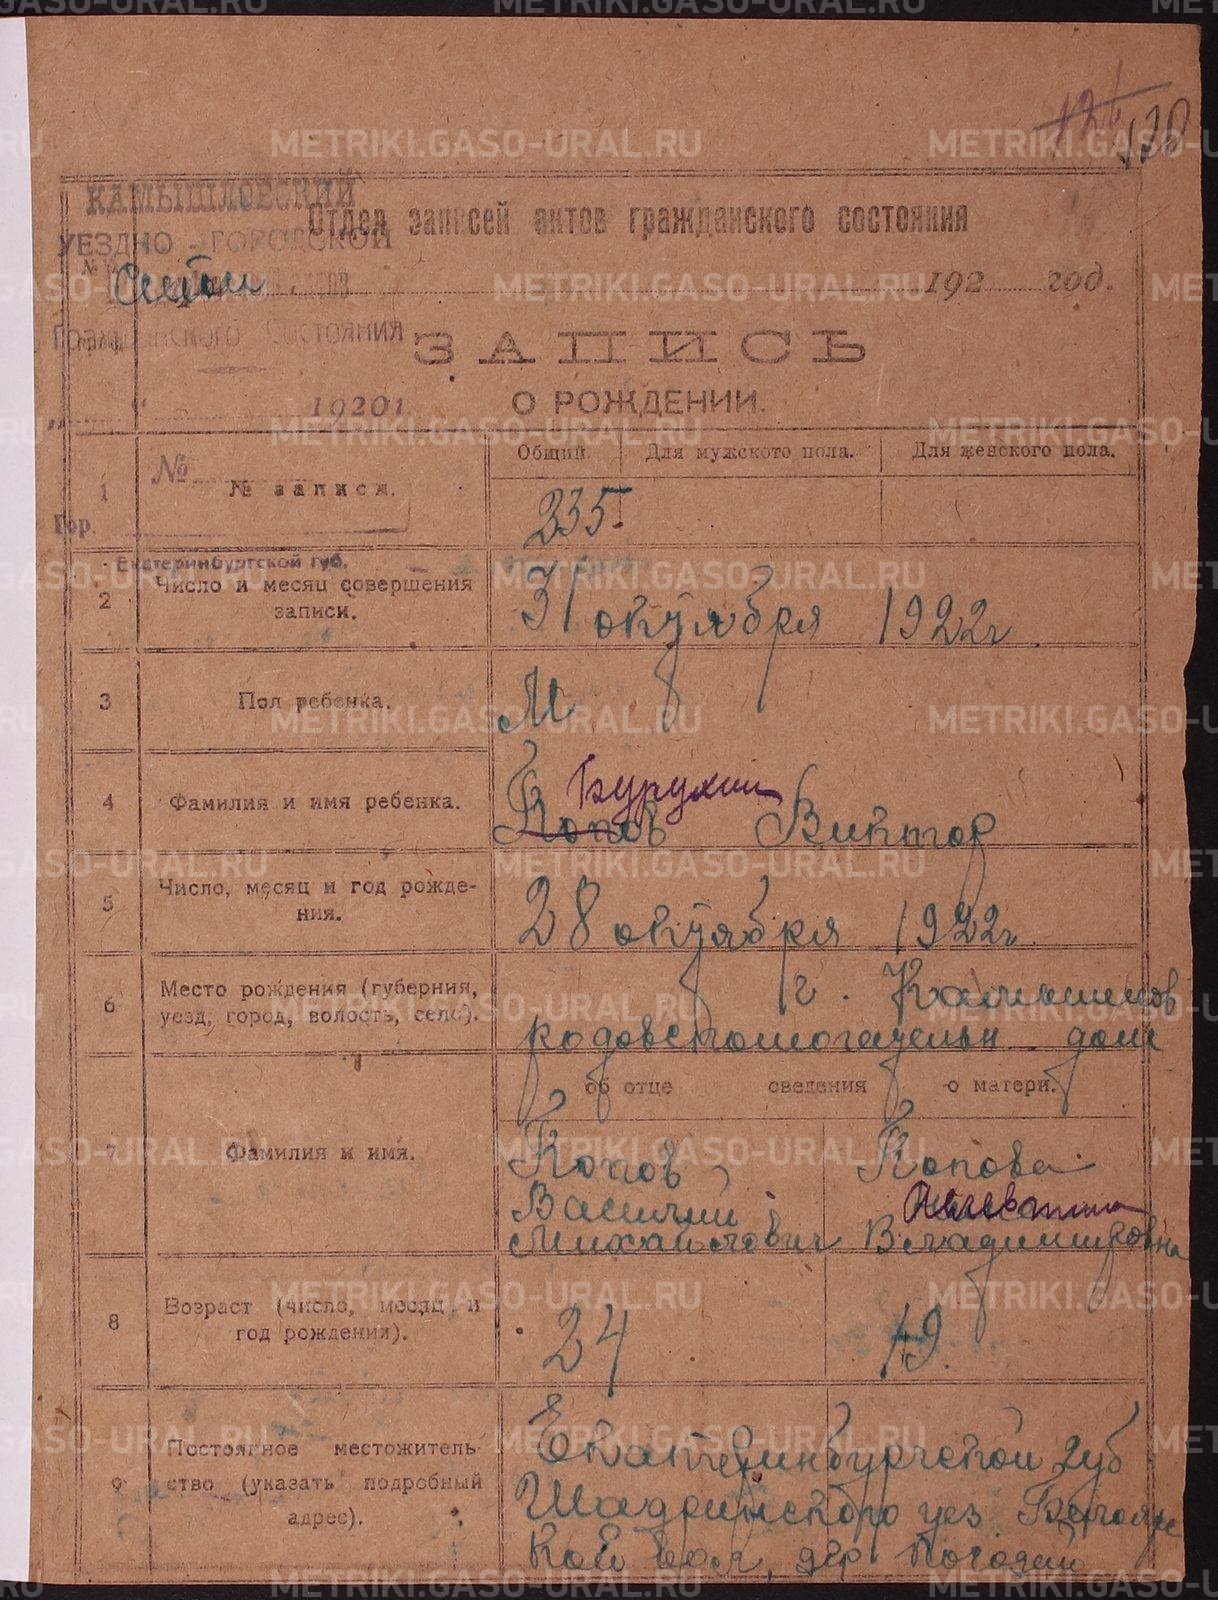 124
138
КАМЫШЛОВСКИЙ
Отдел записей актов гражданского состояния
УЕЗДНО-ГОРОДСКОЙ
192 год.
Гражданского Состояния
ЗАПИСЬ
19201
О РОЖДЕНИИ.
Общий. Для мужского пола. Для женского пола.
№
1 № записи. 235.
Гор.
Екатеринбургской губ.
2 Число и месяц совершения записи. 31 октября 1922 г
3 Пол ребенка. М
Бурухин
4 Фамилия и имя ребенка. Попов Виктор
5 Число, месяц и год рожде-
ния. 28 октября 1922 г.
6 Место рождения (губерния, г. Камышлов
уезд, город, волость, село). родовспомогательн доме
об отце сведения о матери.
7 Фамилия и имя. Попов Попова
Василий
Михайлович Владимировна
8 Возраст (число, месяц и
год рождения). 24 19.
9 Постоянное местожитель- Екатеринбургской губ
ство (указать подробный Шадринского уез
адрес). кой вол, дер
METRIKI.GASO-URAL.RU